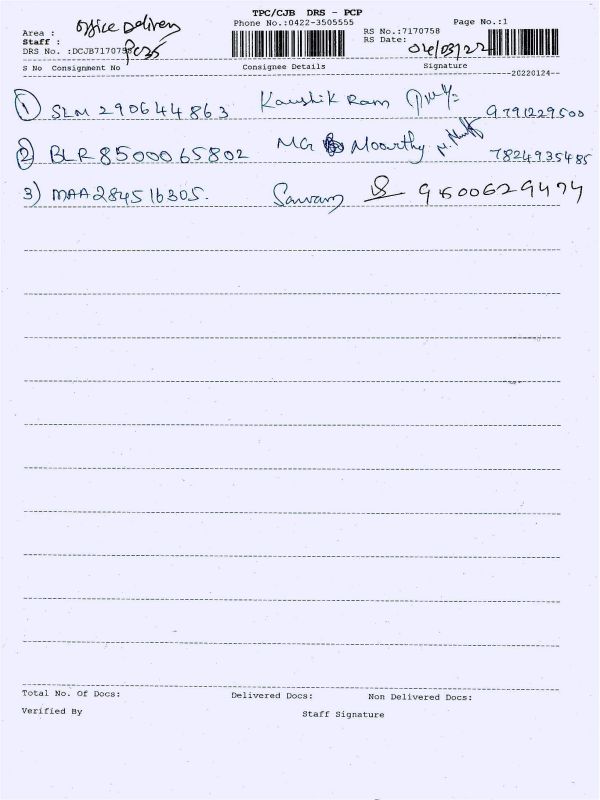 TPC/CJB DRS - PCP
Phone No.:0422-3505555
Page No.:1
Area : Office Delivery
RS No.:7170758
Staff :
RS Date: 04/03/22
DRS No. :DCJB7170758 PC35
S No Consignment No Consignee Details Signature
20220124
1 SLM 290644863 Kaushik Ram 9791229500
2 BLR 8500065802 MG Moorthy 7824935485
3) MAA284516305.
Total No. Of Docs: Delivered Docs: Non Delivered Docs:
Verified By Staff Signature